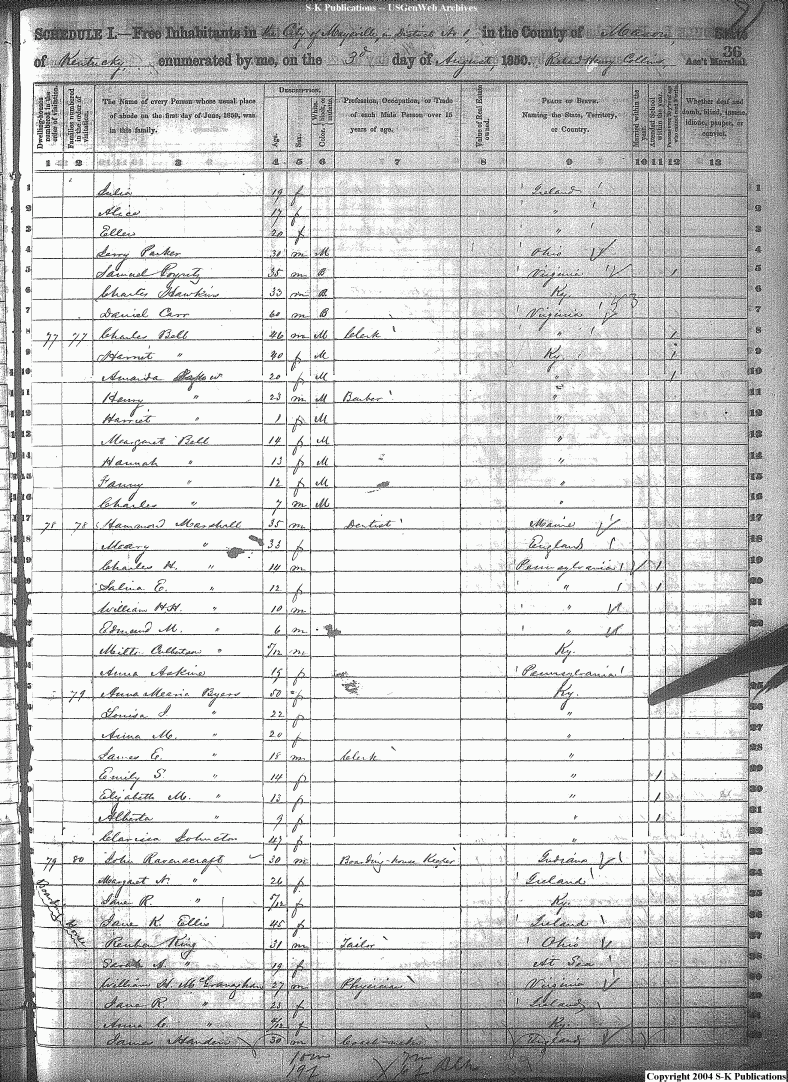 S-K Publications -- USGenWeb Archives
SCHEDULE I.—Free Inhabitants in the City of Maysville, in District No 1, in the County of Mason, State
of Kentucky, enumerated by me, on the 3d day of August, 1850. Henry Collins Ass't Marshal.
36
Dwelling-houses numbered in the order of visitation.
Families numbered in the order of visitation.
The Name of every Person whose usual place of abode on the first day of June, 1850, was in this family.
DESCRIPTION.
Age.
Sex.
Color
Profession, Occupation, or Trade of each Male Person over 15 years of age.
Value of Real Estate owned.
PLACE OF BIRTH. Naming the State, Territory, or Country.
Married within the year.
Attended School within the year.
Whether deaf and dumb, blind, insane, idiotic, pauper, or convict.
1 2 3 4 5 6 7 8 9 10 11 12 13
1 Julia 19 f Ireland 1
2 Alice 17 f " 2
3 Ellen 20 f " 3
4 Parker 30 m M Ohio 4
5 Samuel 35 m B Virginia 1 5
6 Charles Hawkins 33 m B Ky. 6
7 Daniel Carr 60 m B Virginia 7
8 77 77 Charles Bell 46 m M Clerk " 1 8
9 Harriet " 40 f M Ky. 1 9
10 Amanda 20 f M " 1 10
11 Henry " 23 m M Barber " 11
12 Harriet " 1 f M " 12
13 Margaret Bell 14 f M " 13
14 Hannah " 13 f M " 14
15 Fanny " 12 f M " 15
16 Charles " 7 m M " 16
17 78 78 Hammond Marshall 35 m Dentist Maine 17
18 Meary " 33 f England 18
19 Charles H. " 14 m Pennsylvania 1 19
20 Salina E. " 12 f " 1 20
21 William H.H. " 10 m " 21
22 Edmund M. " 6 m " 22
Milton Culbertson " 5/12 m Ky.
Anna Askins 15 f Pennsylvania
79 Anna Mearia Byers 50 f Ky. 25
Louisa J. " 22 f " 26
Anna M. " 20 f " 27
James E. " 18 m Clerk " 28
Emily S " 14 f " 1 29
Elizabeth M. " 13 f " 1 30
Alberta " 9 f " 1 31
Clarissa Johnston 47 f " 32
79 80 John Ravenscraft 30 m Boarding-house Keeper Indiana 33
Boarding House
Margaret N. " 26 f Ireland 34
Jane R " 5/12 f Ky. 35
Jane K. Ellis 45 f Ireland 36
Reuben King 31 m Tailor Ohio 37
Sarah A. " 19 f At Sea 38
William H. McGranaghan 27 m Physician Virginia 39
Jane R. " 25 f Ireland
Anna C. " f Ky.
James 30 m England
Copyright 2004 S-K Publications